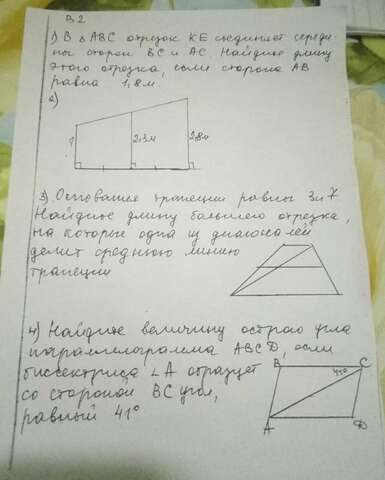 В2
1) В △ АВС отрезок КЕ соединяет середи-
ны сторон ВС и АС. Найдите длину
этого отрезка, если сторона АВ
равна 1,8м.
2)
?
2,3м
2,8м
3) Основание трапеции равны 3 и 7.
Найдите длину большего отрезка,
на которые одна из диагоналей
делит среднюю линию
трапеции
4) Найдите величину острого угла
параллелограмма ABCD, если
биссектриса ∠A образует
со стороной ВС угол,
равный 41°
B
C
41°
A
D